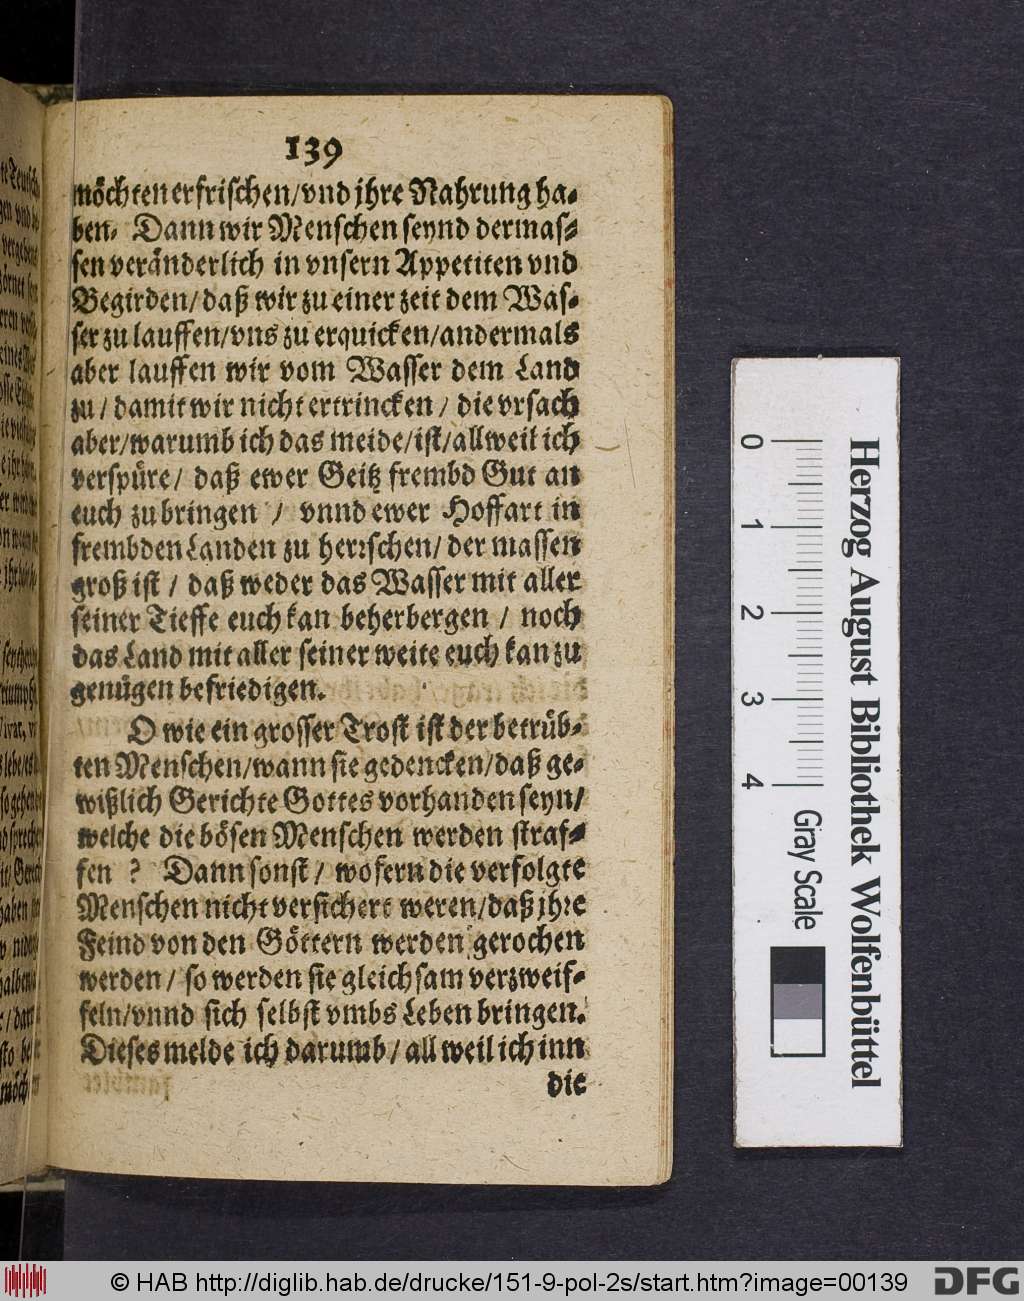 139
möchten erfrischen/vnd jhre Nahrung ha-
ben. Dann wir Menschen seynd dermas-
sen veränderlich in vnsern Appetiten vnd
Begirden/daß wir zu einer zeit dem Was-
ser zu lauffen/vns zu erquicken/andermals
aber lauffen wir vom Wasser dem Land
zu/damit wir nicht ertrincken/die vrsach
aber/warumb ich das meide/ist/allweil ich
verspüre/ daß ewer Geitz frembd Gut an
euch zu bringen / vnnd ewer Hoffart in
frembden Landen zu herrschen/ der massen
groß ist / daß weder das Wasser mit aller
seiner Tieffe euch kan beherbergen / noch
das Land mit aller seiner weite euch kan zu
genügen befriedigen.
O wie ein grosser Trost ist der betrüb-
ten Menschen/wann sie gedencken/daß ge-
wißlich Gerichte Gottes vorhanden seyn/
welche die bösen Menschen werden straf-
fen ? Dann sonst/ wofern die verfolgte
Menschen nicht versichert weren/daß jhre
Feind von den Göttern werden gerochen
werden/ so werden sie gleichsam verzweif-
feln/vnnd sich selbst vmbs Leben bringen.
Dieses melde ich darumb/ all weil ich inn
die
0 1 2 3 4
Gray Scale
Herzog August Bibliothek Wolfenbüttel
© HAB http://diglib.hab.de/drucke/151-9-pol-2s/start.htm?image=00139
DFG